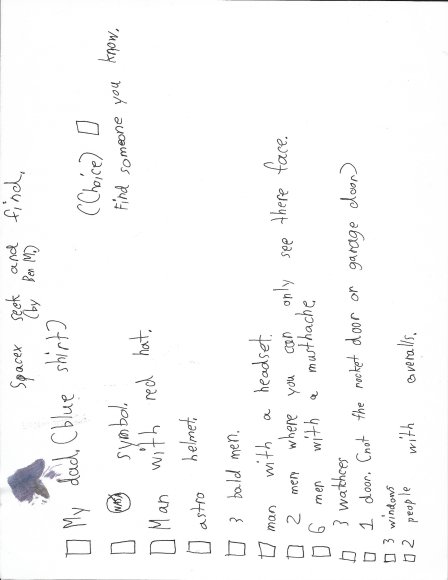 Spacex seek and find.
(by Ben M.)
My dad. (blue shirt)
(Choice)
Find someone you know.
NASA symbol.
Man with red hat.
astro helmet.
3 bald men.
man with a headset.
2 men where you can only see there face.
6 men with a musthache
3 watches
1 door. (not the rocket door or garage door)
3 windows
2 people with overalls.